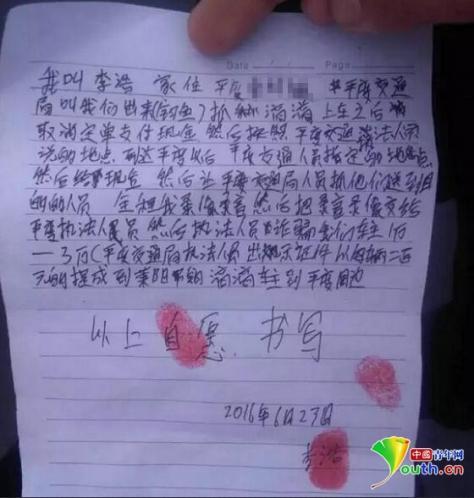 Date
Page
我叫 李浩 家住 平度 平度交通
局叫我们出来(钓鱼)抓 滴滴 上车之后
取消定单支付现金 然后按照平度交通 法人员
说的地点 到达平度以后 平度交通人员指定的地点
然后给现金 然后让平度交通局人员抓他们送
的人员 全程我录像录音 然后把录音录像交给
平度执法人员 然后执法人员诈骗 车主 1万
一3万(平度交通局执法人员出示证件 以每辆二百
元的提成 到莱阳 滴滴车主到平度周边
以上自愿 书写
2016年6月23日
李浩
中國青年网
youth.cn